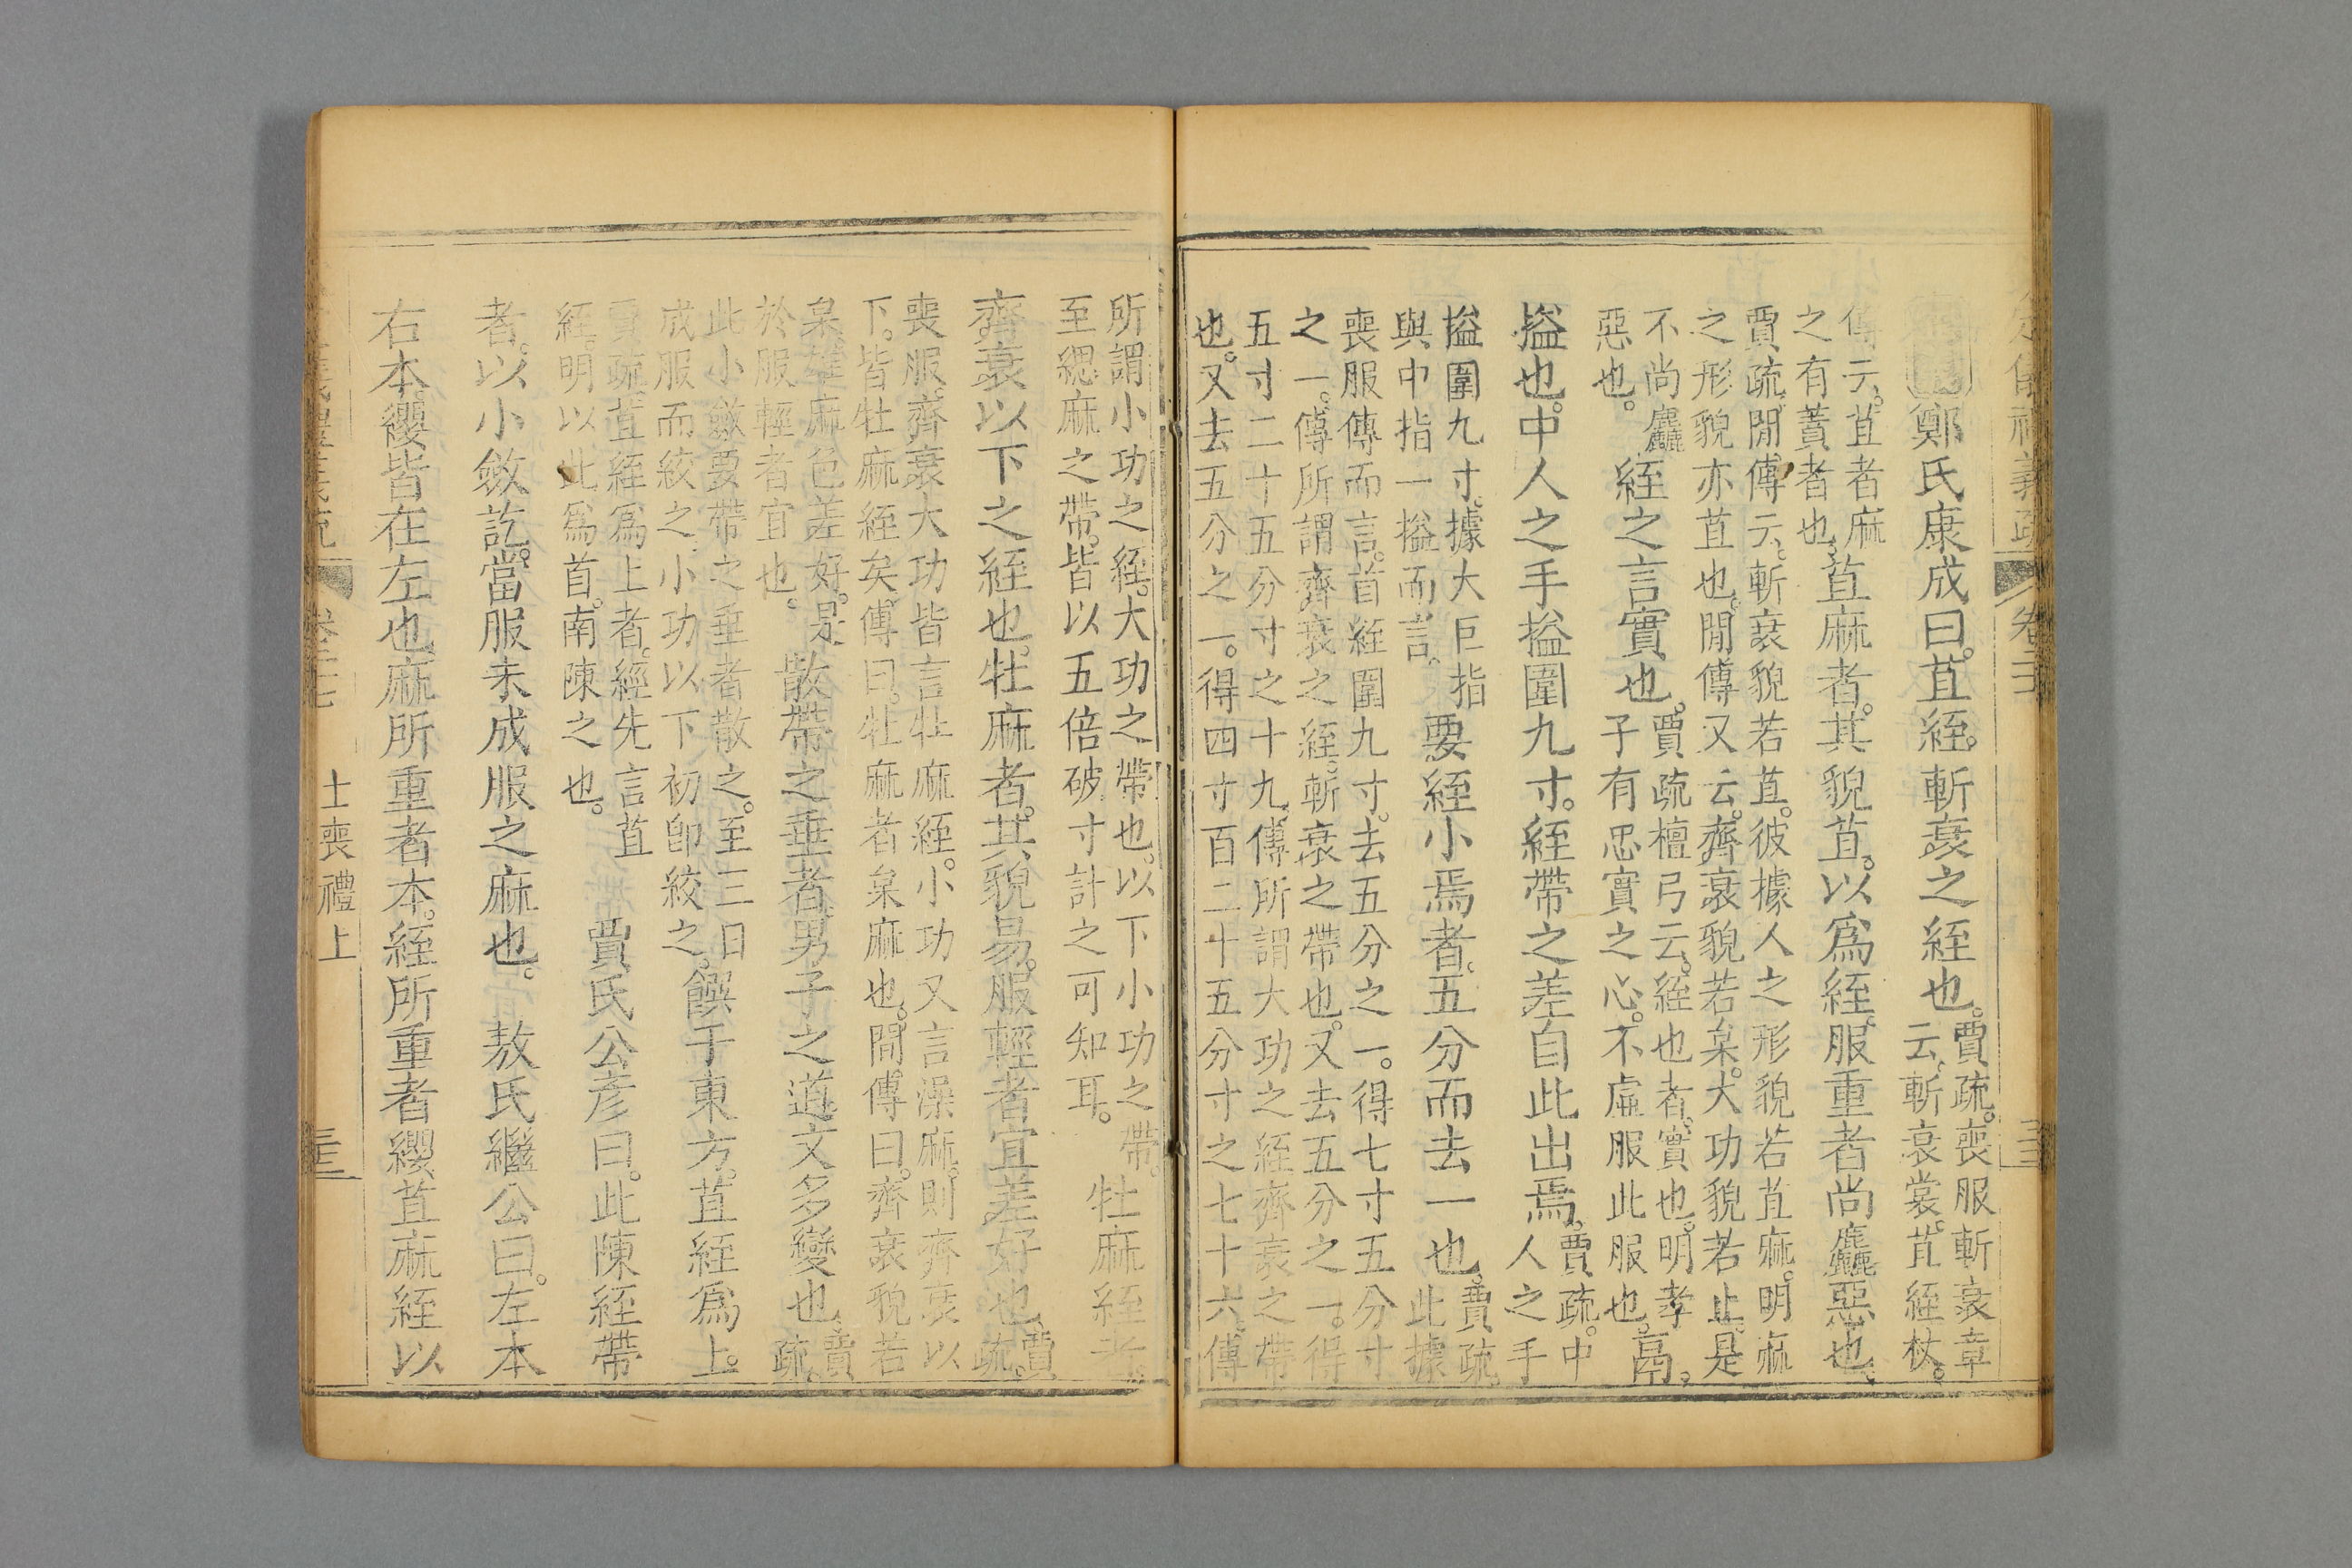 定儀禮義疏 卷二十
鄭氏康成曰。苴絰。斬衰之絰也。賈疏。喪服斬衰章
云。斬衰裳。苴絰杖。
傳云。苴者麻
之有蕡者也。苴麻者。其貌苴。以爲絰。服重者尚麤惡也。
賈疏。閒傳云。斬衰貌若苴。彼據人之形貌若苴麻。明麻
之形貌亦苴也。閒傳又云。齊衰貌若枲。大功貌若止。是
不尚麤
惡也。絰之言實也。賈疏。檀弓云。絰也者。實也。明孝
子有忠實之心。不虛服此服也。鬲。
搤也。中人之手搤圍九寸。絰帶之差自此出焉。賈疏。中
人之手
搤圍九寸。據大巨指
與中指一搤而言。要絰小焉者。五分而去一也。賈疏。
此據
喪服傳而言。首絰圍九寸。去五分之一。得七寸五分寸
之一。傳所謂齊衰之絰。斬衰之帶也。又去五分之一。得
五寸二十五分寸之十九。傳所謂大功之絰齊衰之帶
也。又去五分之一。得四寸百二十五分寸之七十六。傳
所謂小功之絰。大功之帶也。以下小功之帶。
至緦麻之帶。皆以五倍破寸計之可知耳。牡麻絰者
齊衰以下之絰也。牡麻者。其貌易。服輕者宜差好也。賈
疏。
喪服。齊衰大功皆言牡麻絰。小功又言澡麻。則齊衰以
下。皆牡麻絰矣。傳曰。牡麻者枲麻也。閒傳曰。齊衰貌若
枲。雄麻色差好。是
於服輕者宜也。散帶之垂者。男子之道。文多變也。賈
疏。
此小斂要帶之垂者散之。至三日
成服而絞之。小功以下初卽絞之。饌于東方。苴絰爲上。
賈疏。苴絰爲上者。經先言苴
絰。明以此爲首。南陳之也。賈氏公彥曰。此陳絰帶
者。以小斂訖。當服未成服之麻也。敖氏繼公曰。左本
右本。纓皆在左也。麻所重者本。絰所重者纓。苴麻絰以
卷二十七 士喪禮上 三